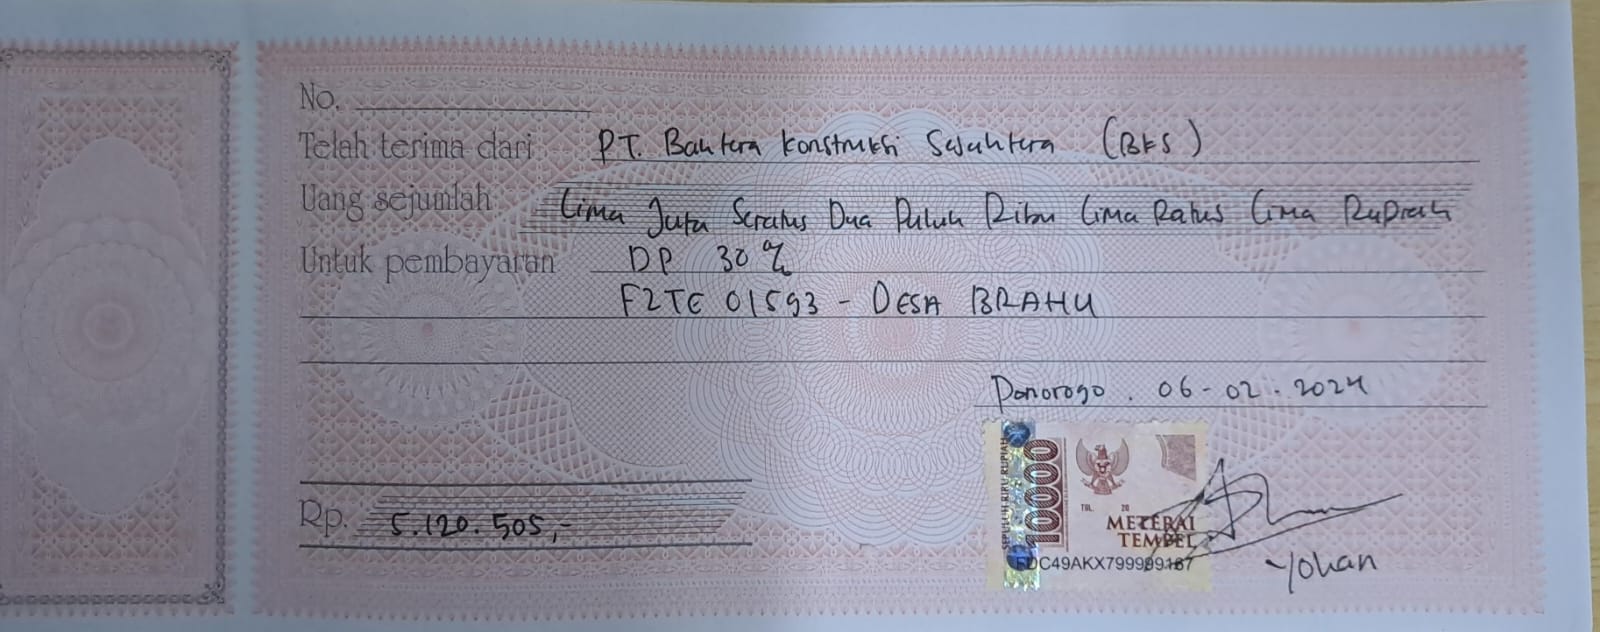 No.
Telah terima dari PT. Bahtera Konstruksi Sejahtera (BKS)
Uang sejumlah Lima Juta Seratus Dua Puluh Ribu Lima Ratus Lima Rupiah
Untuk pembayaran DP 30%
F2TE 01593 - DESA BRAHU
Ponorogo. 06-02-2024
SEPULUH RIBU RUPIAH
10000
TGL. 20
METERAI
TEMPEL
Rp. 5.120.505,-
Yohan